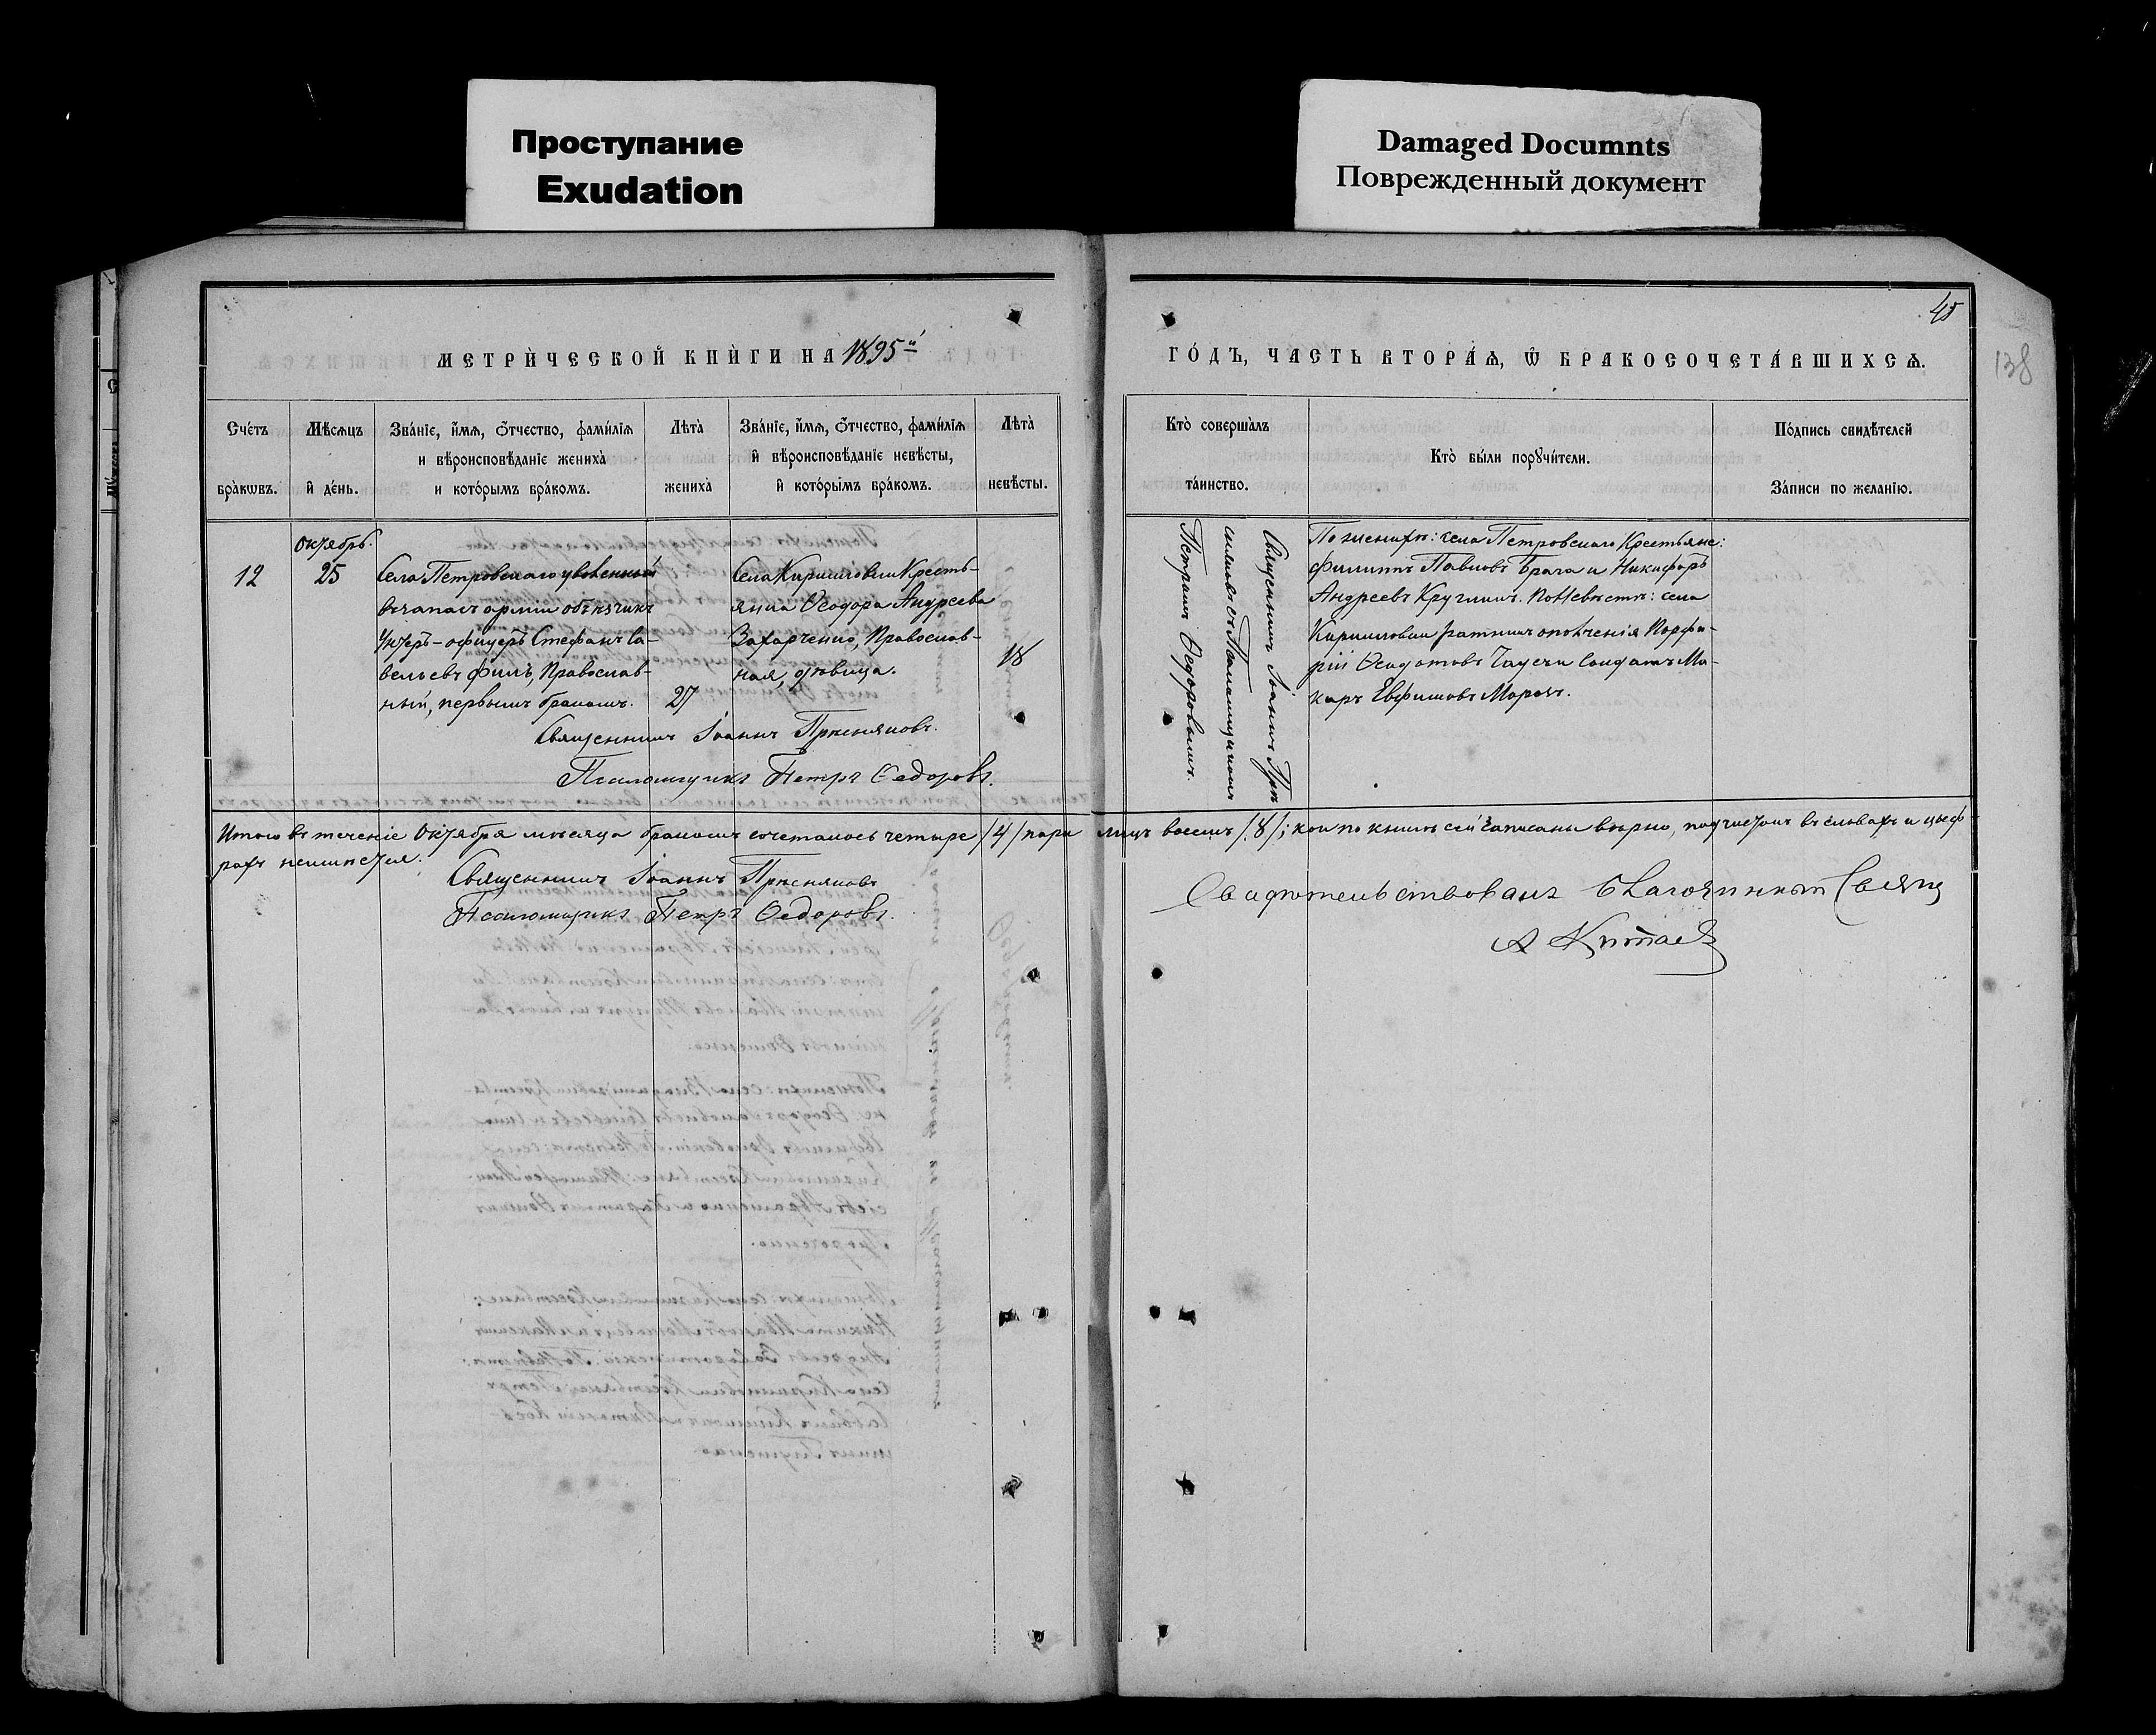 Проступание
Exudation
Damaged Documnts
Поврежденный документ
45
138
МЕТРИЧЕСКОЙ КНИГИ НА 1895й
ГОДЪ, ЧАСТЬ ВТОРАѦ, Ѡ БРАКОСОЧЕТАВШИХСѦ.
Счетъ браковъ.
Мѣсѧцъ и день.
Званіе, имѧ, отчество, фамиліѧ
и вѣроисповѣданіе жениха
и которымъ бракомъ.
Лѣта жениха
Званіе, имѧ, отчество, фамиліѧ
и вѣроисповѣданіе невѣсты,
и которымъ бракомъ.
Лѣта невѣсты.
Кто совершалъ таинство.
Кто были порꙋчители.
Подпись свидѣтелей
Записи по желанію.
12
Октябрь.
25
Села Петровскаго уволенный
въ запасъ арміи объѣзчикъ
Унтеръ-офицеръ Стефанъ Са-
вельевъ Филь, Православ-
ный, первымъ бракомъ.
27
Села Кириловки Кресть-
янка Ѳеодора Андреева
Захарченко, Православ-
ная, дѣвица.
18
Священникъ Іоаннъ Прѣсняковъ.
Псаломщикъ Петръ Ѳедоровъ.
Священникъ Іоаннъ Прѣ
сняковъ съ Псаломщикомъ
Петромъ Ѳедоровымъ.
По женихѣ: села Петровскаго Крестьяне:
Филиппъ Павловъ Брага и Никифоръ
Андреевъ Круглик. По Невѣстѣ: села
Кириловки ратникъ ополченія Порфи-
рій Ѳеодотовъ солдатъ Ма-
каръ Евфимовъ
Итого въ теченіе Октября мѣсяца бракомъ сочеталось четыре /4/ пары лицъ восемь /8/; кои по книгѣ сей записаны вѣрно, подчистокъ въ словахъ и цыф-
рахъ неимѣется.
Священникъ Іоаннъ Прѣсняковъ
Псаломщикъ Петръ Ѳедоровъ.
Свидѣтельствовалъ Благочинный Свящ
А Китаев